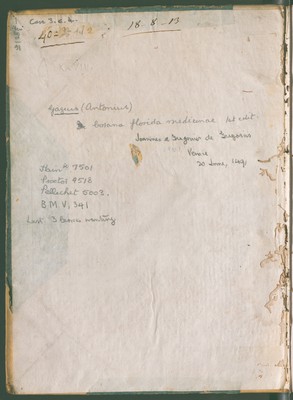 18-8-13
Gazius (Antonius)
Corona florida medicinae 1st edit.
Joannes & Gregorius de Gregoriis
Venice
20 June, 1491
Hain * 7501
Proctor 4518
Pellechet 5003.
B.M. V, 341
Last 3 leaves wanting